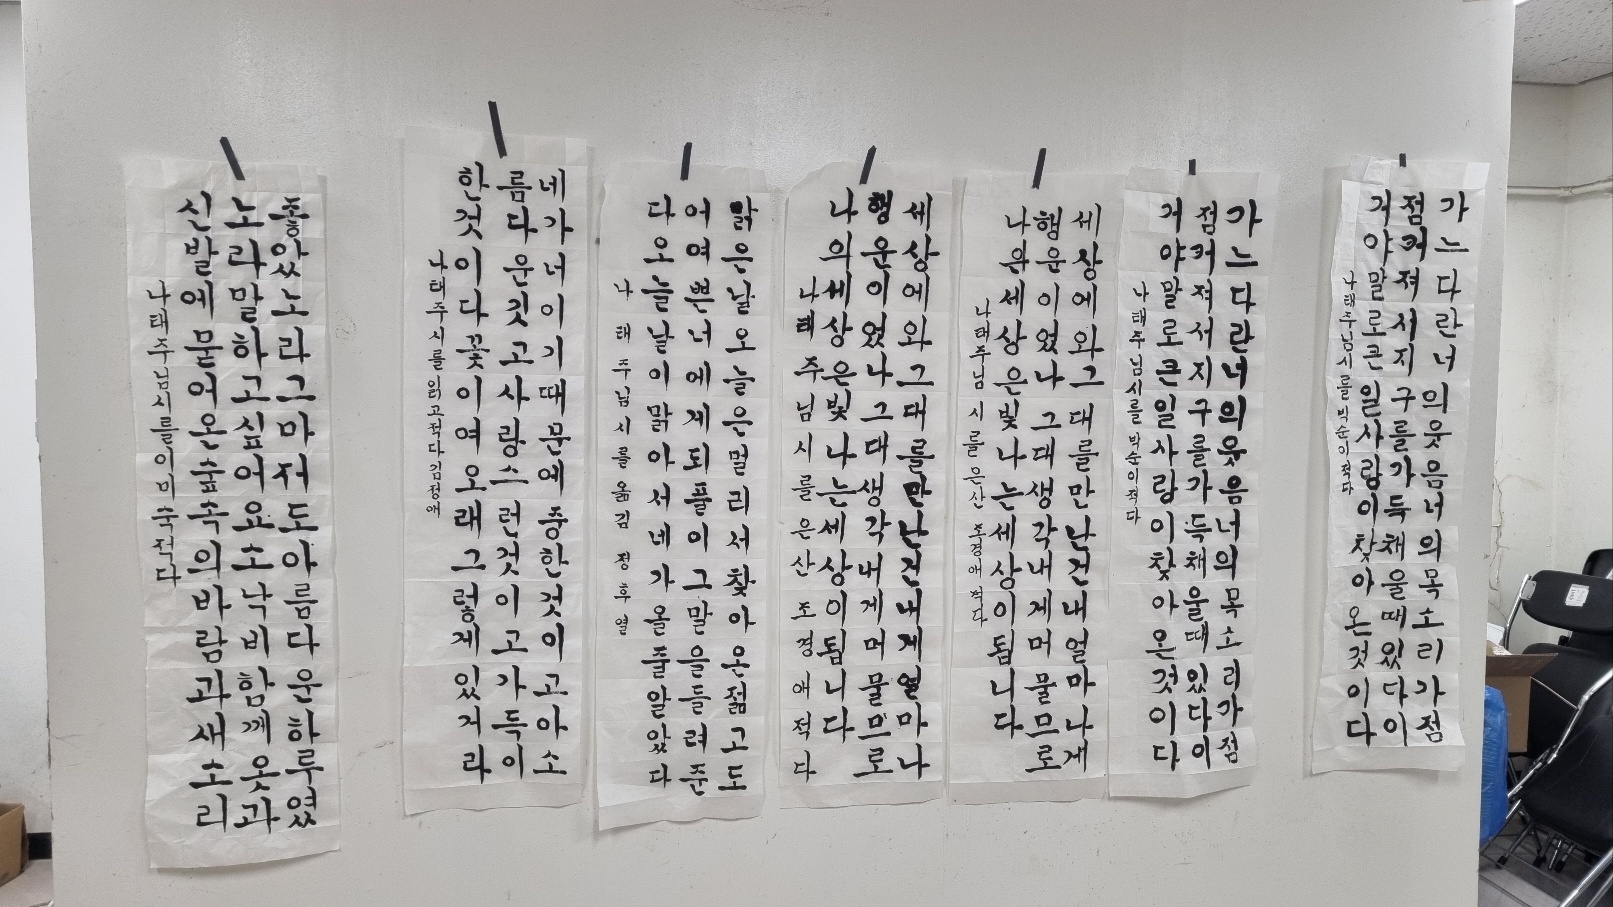 좋았노라그마저도아름다운하루였
노라말하고싶어요소낙비함께옷과
신발에묻어온숲속의바람과새소리
나태주님시를이미숙적다
네가너이기때문에중한것이고아소
름다운것고사랑스런것이고가득이
한것이다꽃이여오래그렇게있거라
나태주시를읽고적다김정애
맑은날오늘은멀리서찾아온젊고도
어여쁜너에게되풀이그말을들려준
다오늘날이맑아서네가올줄알았다
나태주님시를옮김정후열
세상에와그대를만난건내게얼마나
행운이었나그대생각내게머물므로
나의세상은빛나는세상이됩니다
나태주님시를은산조경애적다
세상에와그대를만난건내얼마나게
행운이였나그대생각내게머물므로
나의세상은빛나는세상이됩니다
나태주님시를은산조경애적다
가느다란너의웃음너의목소리가점
점커져서지구를가득채울때있다이
거야말로큰일사랑이찾아온것이다
나태주님시를박순이적다
가느다란너의웃음너의목소리가점
점커져서지구를가득채울때있다이
거야말로큰일사랑이찾아온것이다
나태주님시를박순이적다